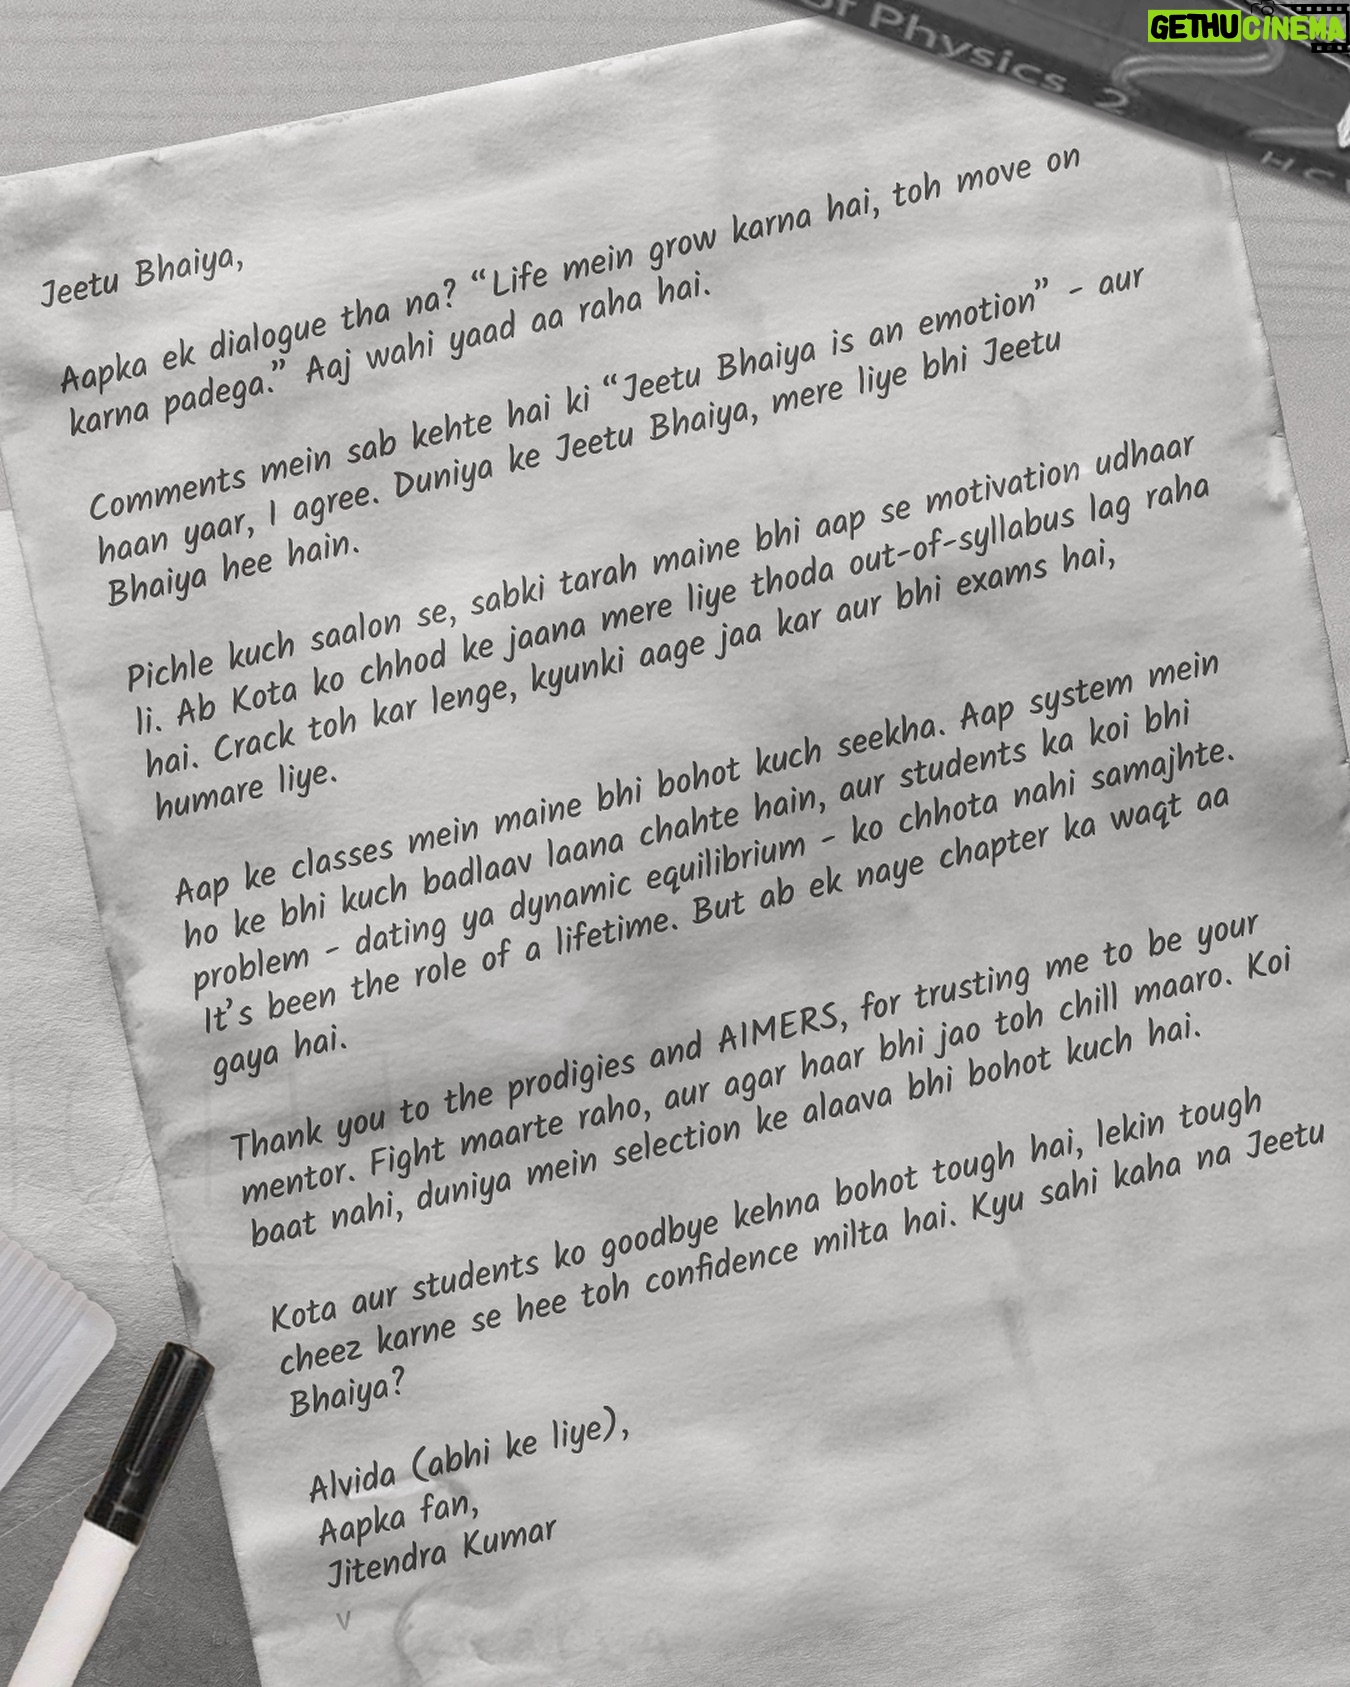 GETHU CINEMA
of Physics 2
H C V
Jeetu Bhaiya,
Aapka ek dialogue tha na? “Life mein grow karna hai, toh move on
karna padega.” Aaj wahi yaad aa raha hai.
Comments mein sab kehte hai ki “Jeetu Bhaiya is an emotion” - aur
haan yaar, I agree. Duniya ke Jeetu Bhaiya, mere liye bhi Jeetu
Bhaiya hee hain.
Pichle kuch saalon se, sabki tarah maine bhi aap se motivation udhaar
li. Ab Kota ko chhod ke jaana mere liye thoda out-of-syllabus lag raha
hai. Crack toh kar lenge, kyunki aage jaa kar aur bhi exams hai,
humare liye.
Aap ke classes mein maine bhi bohot kuch seekha. Aap system mein
ho ke bhi kuch badlaav laana chahte hain, aur students ka koi bhi
problem - dating ya dynamic equilibrium - ko chhota nahi samajhte.
It’s been the role of a lifetime. But ab ek naye chapter ka waqt aa
gaya hai.
Thank you to the prodigies and AIMERS, for trusting me to be your
mentor. Fight maarte raho, aur agar haar bhi jao toh chill maaro. Koi
baat nahi, duniya mein selection ke alaava bhi bohot kuch hai.
Kota aur students ko goodbye kehna bohot tough hai, lekin tough
cheez karne se hee toh confidence milta hai. Kyu sahi kaha na Jeetu
Bhaiya?
Alvida (abhi ke liye),
Aapka fan,
Jitendra Kumar